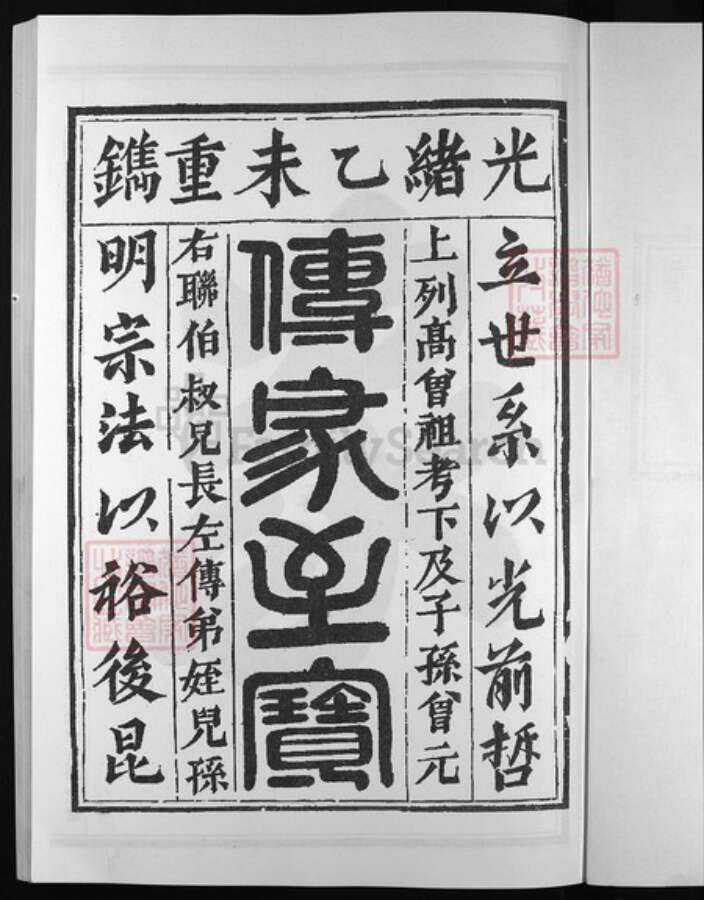 光緒乙未重鐫
立世系以光前哲
上列高曾祖考下及子孫曾元
傳家至寶
右聯伯叔兄長左傳弟姪兒孫
明宗法以裕後昆
FamilySearch